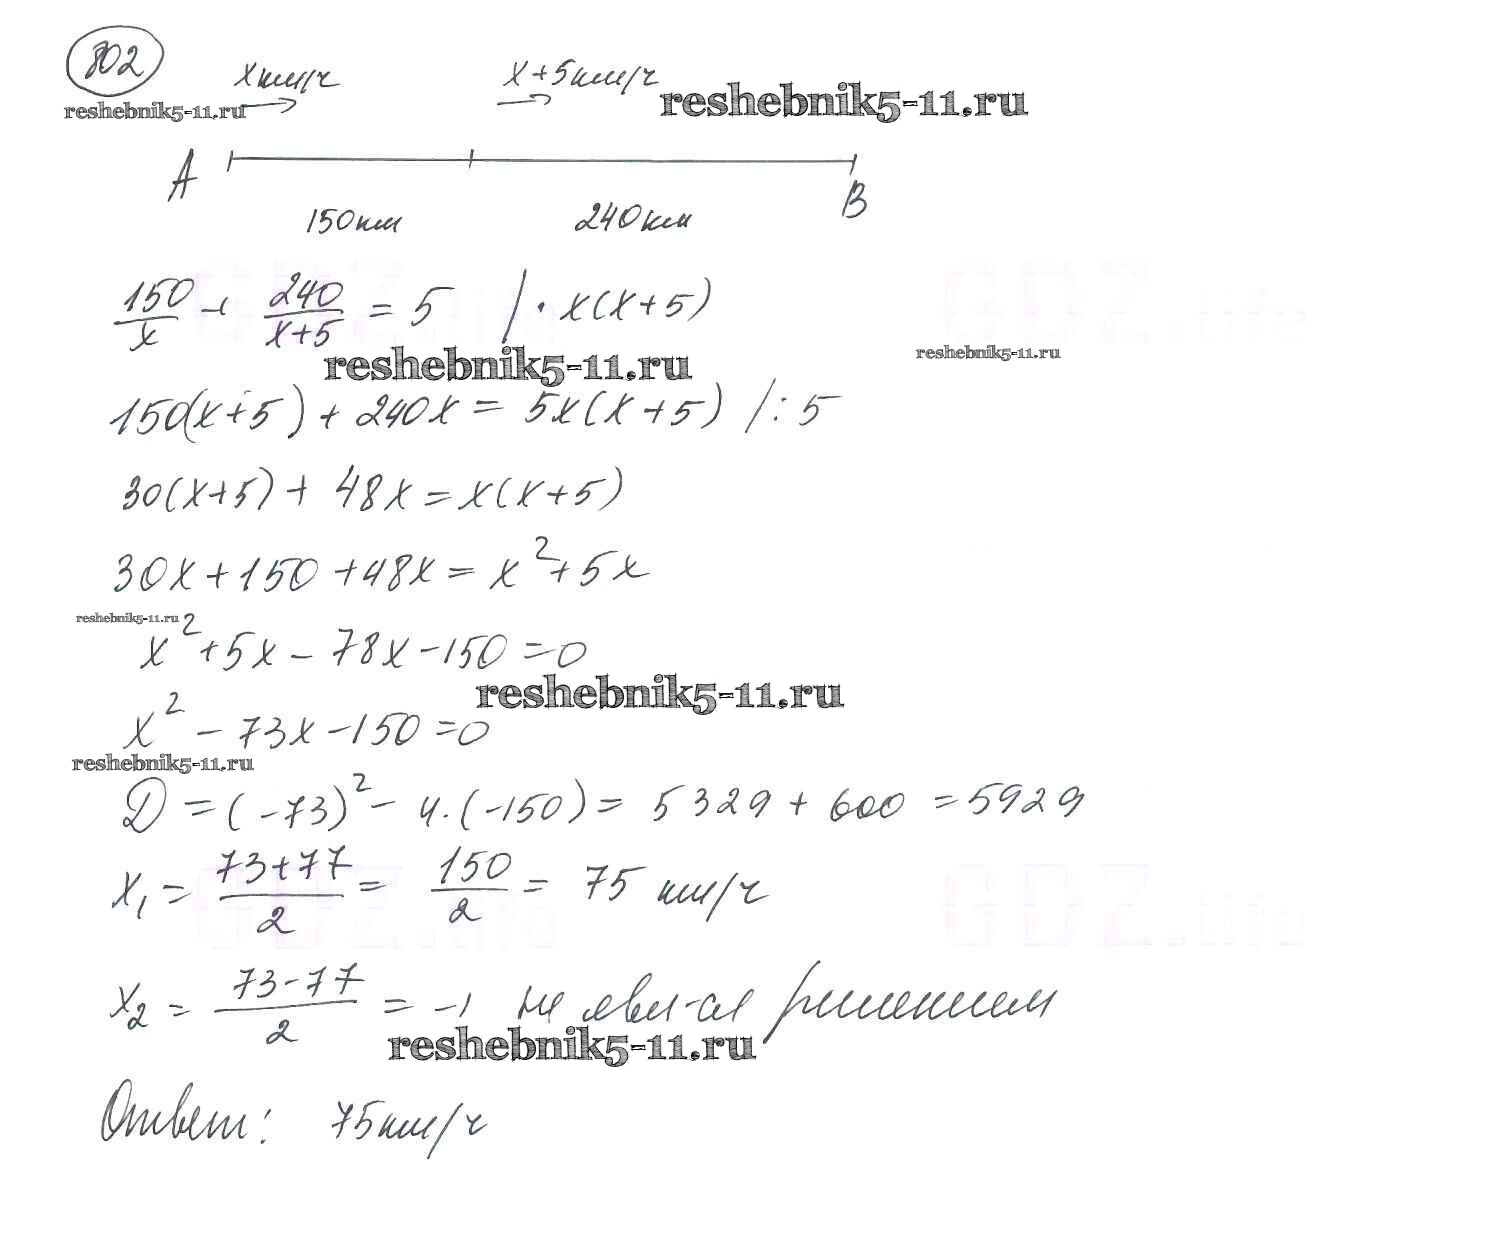 802
x км/ч
x+5 км/ч
reshebnik5-11.ru
reshebnik5-11.ru
A
B
150 км
240 км
150/x + 240/(x+5) = 5 | · x(x+5)
reshebnik5-11.ru
reshebnik5-11.ru
150(x+5) + 240x = 5x(x+5) /:5
30(x+5) + 48x = x(x+5)
30x+150+48x = x²+5x
reshebnik5-11.ru
x²+5x-78x-150=0
reshebnik5-11.ru
x²-73x-150=0
reshebnik5-11.ru
D = (-73)²-4·(-150) = 5329+600 = 5929
x₁ = (73+77)/2 = 150/2 = 75 км/ч
GDZ.life
GDZ.life
x₂ = (73-77)/2 = -1 не явл-ся решением
reshebnik5-11.ru
Ответ: 75 км/ч